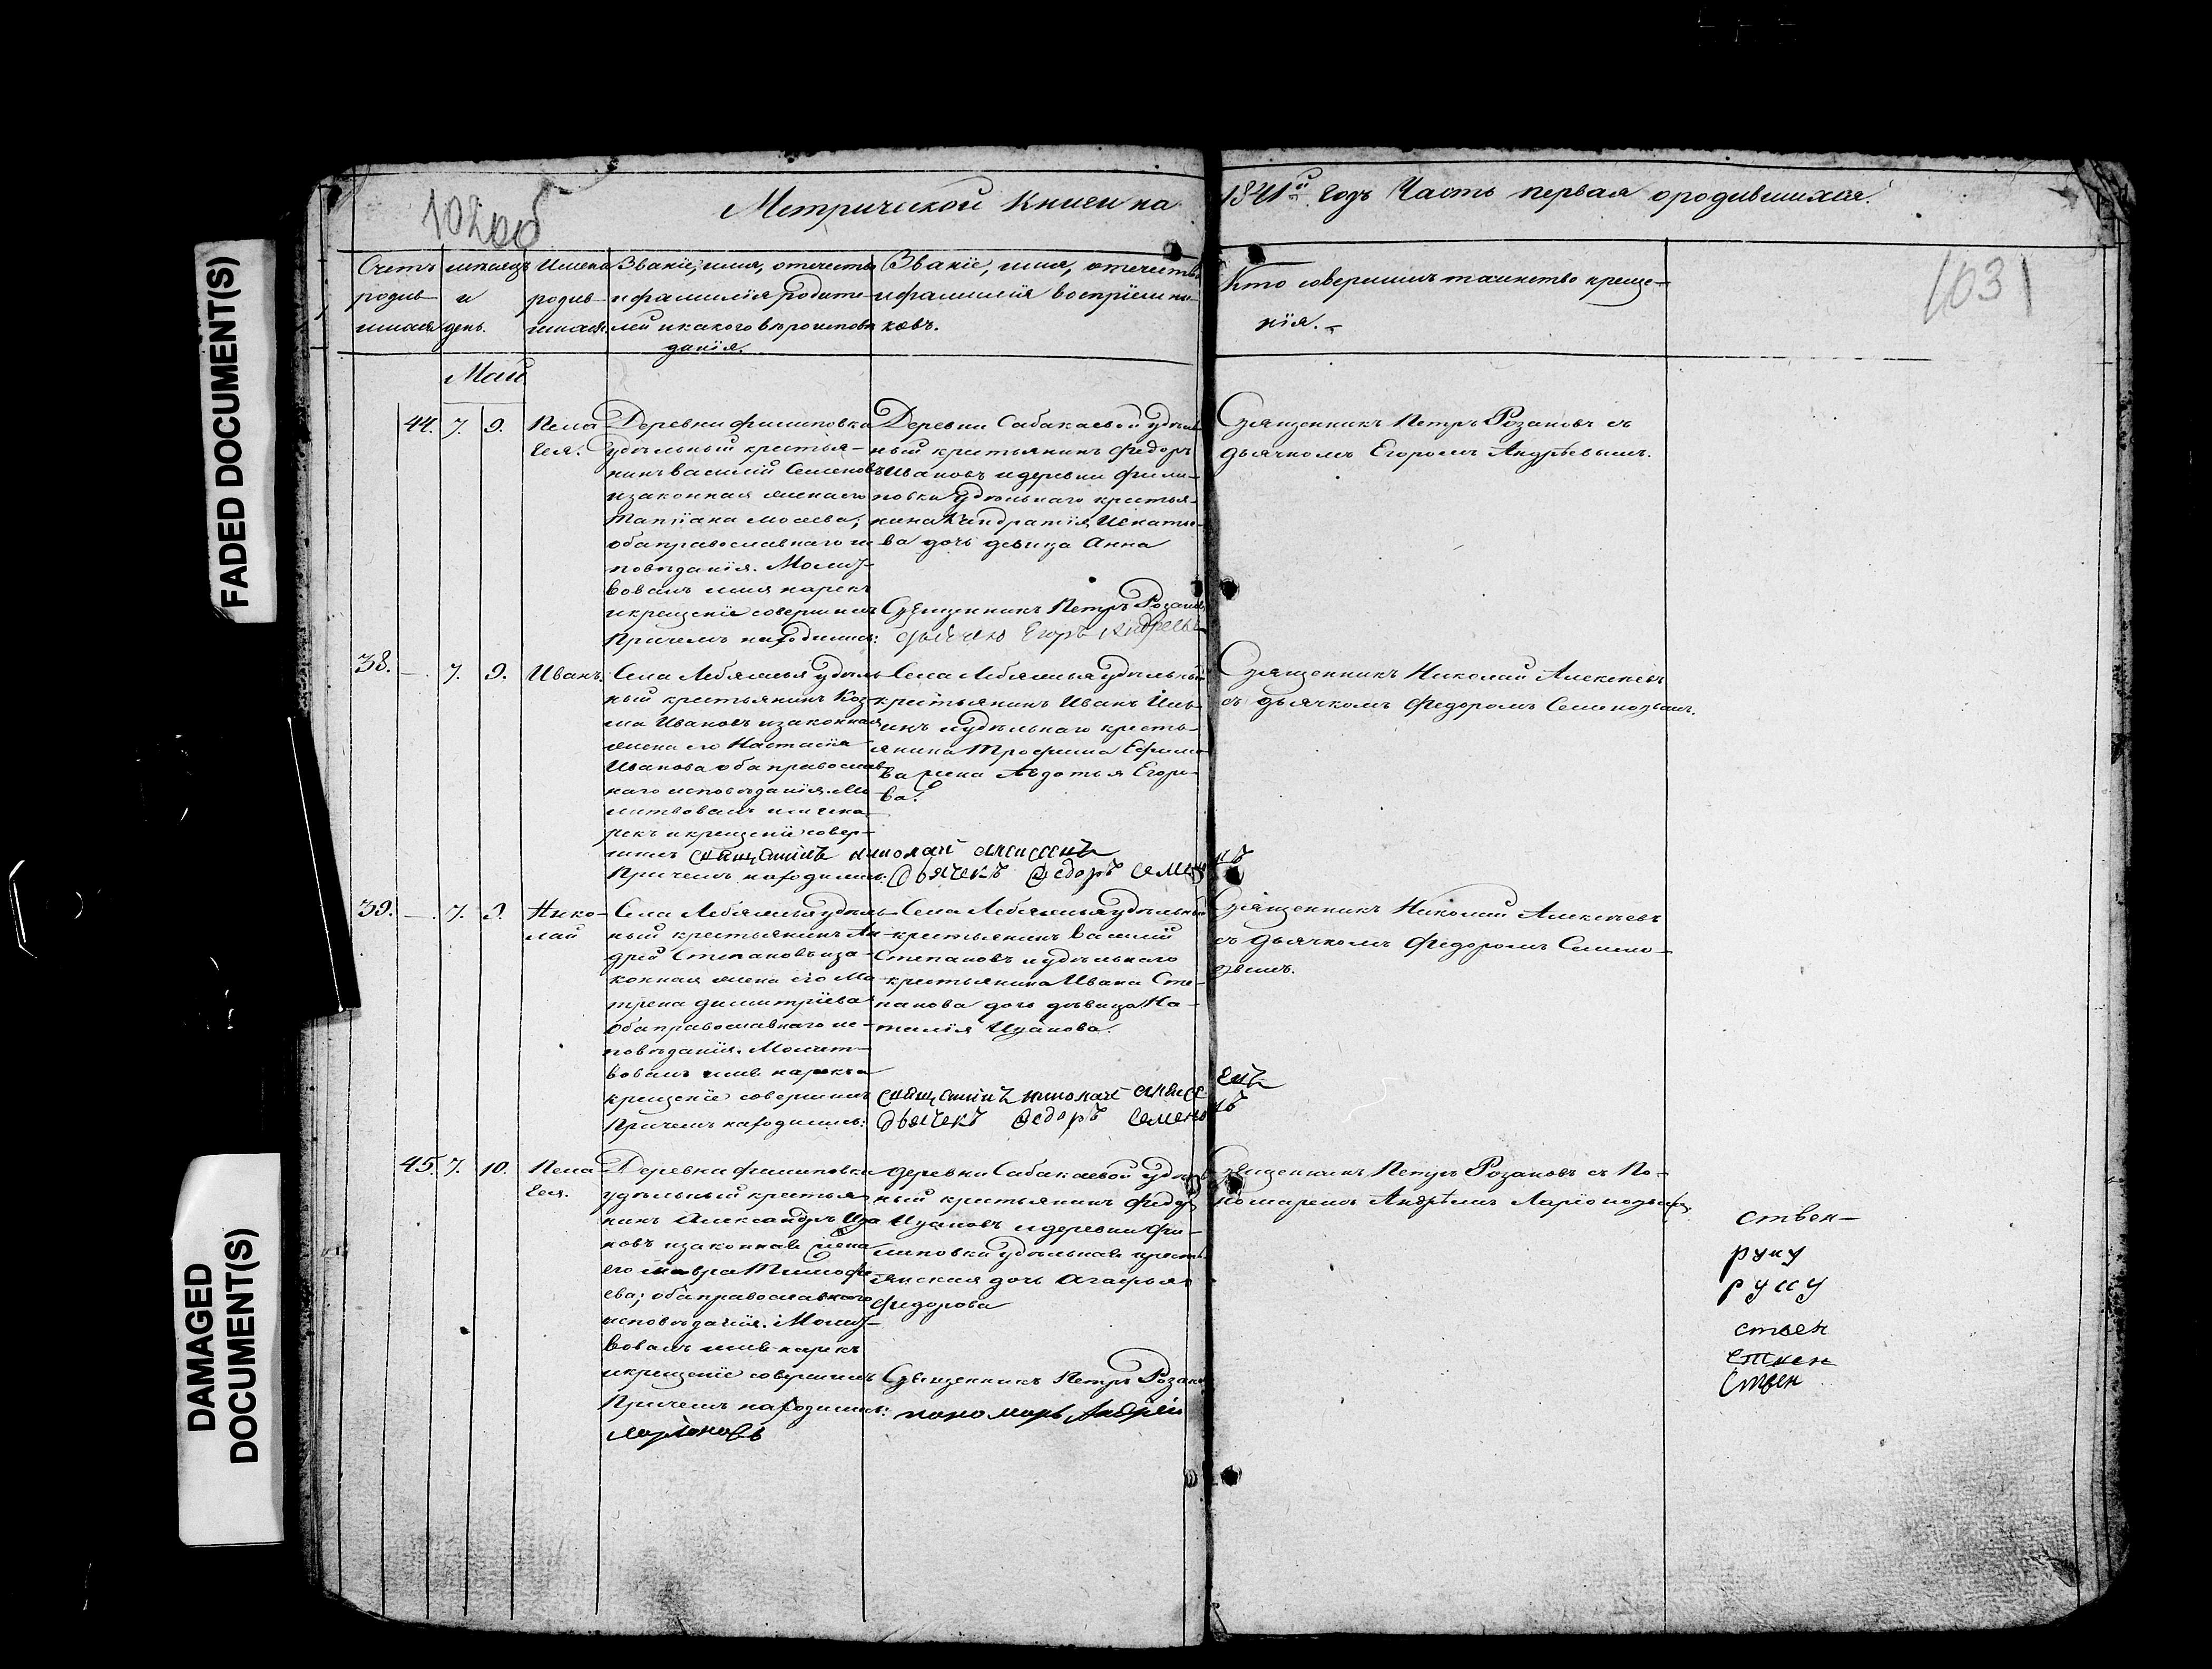 FADED DOCUMENT(S)
DAMAGED DOCUMENT(S)
102об
103
Метрической книги на 1841й годъ Часть первая ородившихся.
Счетъ родив-
шихся
месяцъ
и
день.
Имена
родив-
шихся.
Званіе, имя, отечество
и фамилія родите-
лей и какого вѣроиспове
данія.
Званіе, имя, отечество
и фамилія воспріемни-
ковъ.
Кто совершилъ таинство креще-
нія.
Май
44. 7. 9. Пела
гея.
Деревни филиповки
удѣльный крестья-
нинъ василій Семеновъ
и законная жена его
Татіана Мосева;
оба православнаго ис
повѣданія. Молит-
вовалъ имя нарекъ
и крещеніе совершилъ
Причемъ находились:
Деревни Сабакаевой удѣль
ный крестьянинъ Федоръ
Ивановъ и деревни фили-
повки удѣльнаго крестья-
нина Кандратія Игнатье-
ва дочь девица Анна
Священникъ Петръ Розановъ
дьячекъ Егоръ Андреевъ
Священникъ Петръ Розановъ съ
дьячкомъ Егоромъ Андрѣвымъ.
38. —. 7. 9. Иванъ.
Села Лебяжья удѣль
ный крестьянинъ Коз-
ма Ивановъ и законная
жена его Настасія
Иванова оба православ-
наго исповѣданія. Мо
литвовалъ имя на
рекъ и крещеніе совер-
шилъ священникъ николай алексеевъ
Причемъ находились: Дьячекъ Федоръ Семеновъ
Села Лебяжья удѣльный
крестьянинъ Иванъ Иль-
инъ и удѣльнаго кресть-
янина Трофима Ефимо
ва жена Авдотья Егоро-
ва.
Священникъ Николай Алексеевъ
съ дьячкомъ Федоромъ Семеновымъ.
39. —. 7. 9. Нико-
лай
Села Лебяжья удѣль-
ный крестьянинъ Ан-
дрей Степановъ и за-
конная жена его Ма-
трена димитріева
оба православнаго ис-
повѣданія. Молит-
вовалъ имя нарекъ и
крещеніе совершилъ
Причемъ находились:
Села Лебяжья удѣльный
крестьянинъ Василій
Степановъ и удѣльнаго
крестьянина Ивана Сте-
панова дочь дѣвица На-
талія Иванова.
священникъ николай алексеевъ
дьячекъ Федоръ Семеновъ
Священникъ Николай Алексеевъ
съ дьячкомъ Федоромъ Семено-
вымъ.
45. 7. 10. Пела
гея.
Деревни филиповки
удѣльный крестья
нинъ Александръ Ива
новъ и законная жена
его мавра Тимофе
ева; оба православнаго
исповѣданія. Молит-
вовалъ имя нарекъ
и крещеніе совершилъ
Причемъ находились:
деревни Сабакаевой удѣль
ный крестьянинъ Федоръ
Ивановъ и деревни фи-
липовки удѣльная кресть-
янская дочь Агафья
Федорова
Священникъ Петръ Розановъ
пономарь Андрей
Ларіоновъ
Священникъ Петръ Розановъ съ По-
номаремъ Андрѣемъ Ларіоновымъ.
ствен-
руку
руку
ствен
ствен
ствен